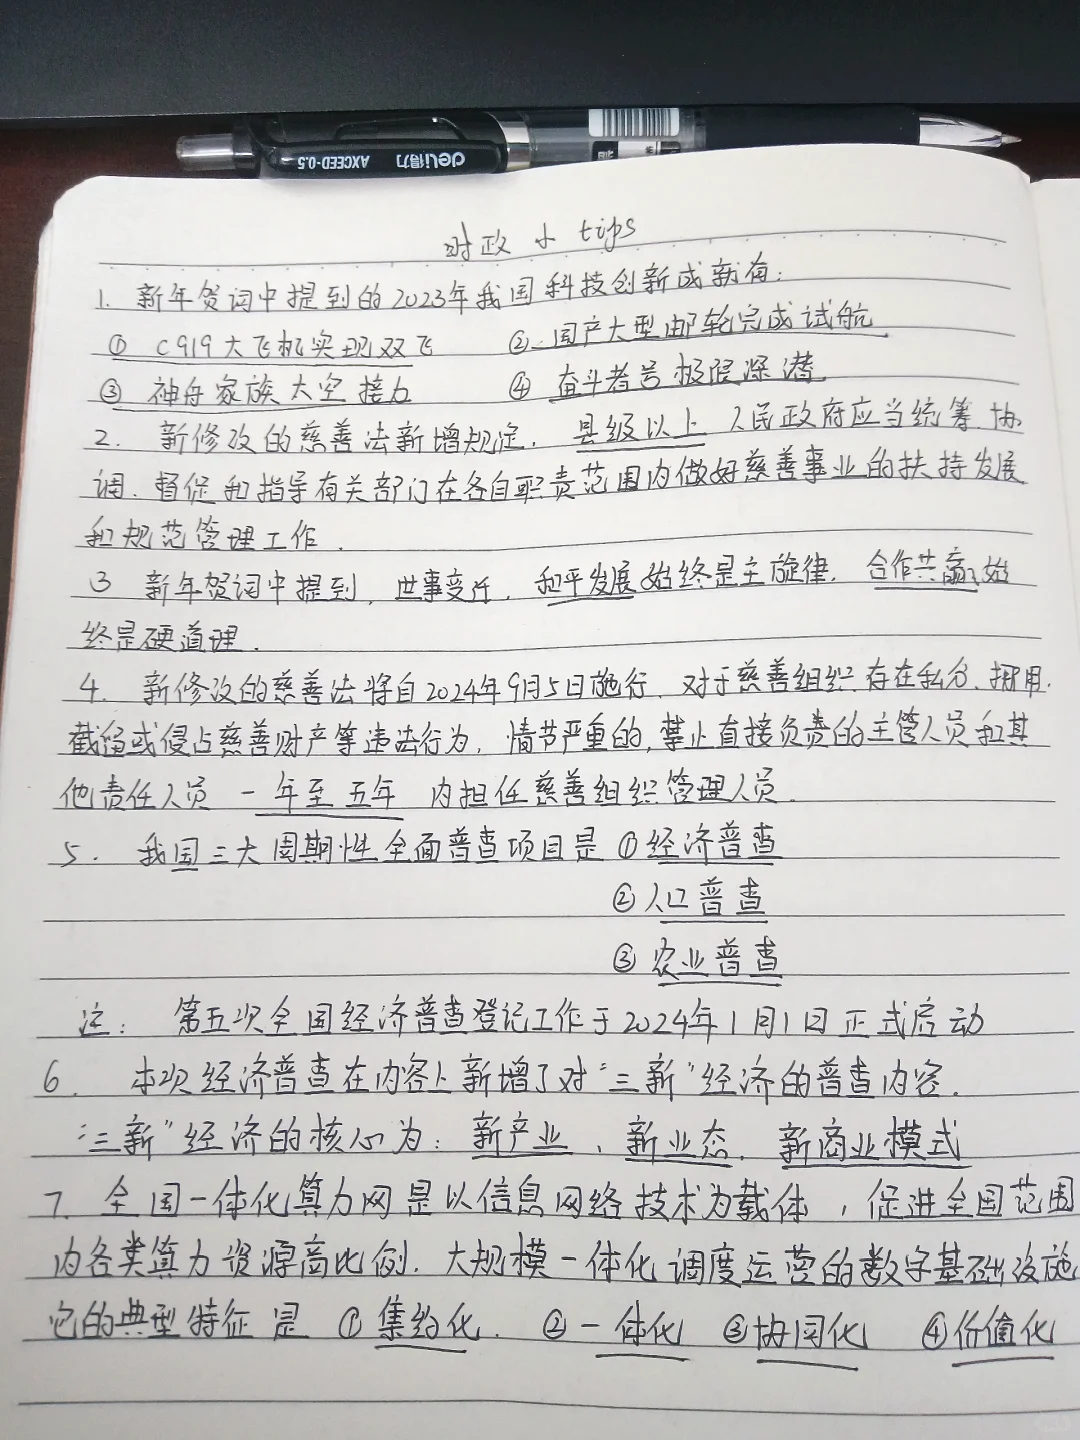 deli得力 AXCEED-0.5
时政小tips
1. 新年贺词中提到的2023年我国科技创新成就有:
① C919大飞机实现双飞 ② 国产大型邮轮完成试航
③ 神舟家族太空接力 ④ 奋斗者号极限深潜
2. 新修改的慈善法新增规定, 县级以上人民政府应当统筹、协
调、督促和指导有关部门在各自职责范围内做好慈善事业的扶持发展
和规范管理工作.
3 新年贺词中提到, 世事变迁, 和平发展始终是主旋律, 合作共赢始
终是硬道理.
4. 新修改的慈善法将自2024年9月5日施行, 对于慈善组织存在私分、挪用、
截留或侵占慈善财产等违法行为, 情节严重的, 禁止直接负责的主管人员和其
他责任人员 一年至五年 内担任慈善组织管理人员.
5. 我国三大周期性全面普查项目是 ①经济普查
②人口普查
③农业普查
注: 第五次全国经济普查登记工作于2024年1月1日正式启动
6. 本次经济普查在内容上新增了对“三新”经济的普查内容.
“三新”经济的核心为: 新产业、新业态、新商业模式
7. 全国一体化算力网是以信息网络技术为载体, 促进全国范围
内各类算力资源高比例、大规模一体化调度运营的数字基础设施
它的典型特征是 ①集约化、 ②一体化 ③协同化 ④价值化